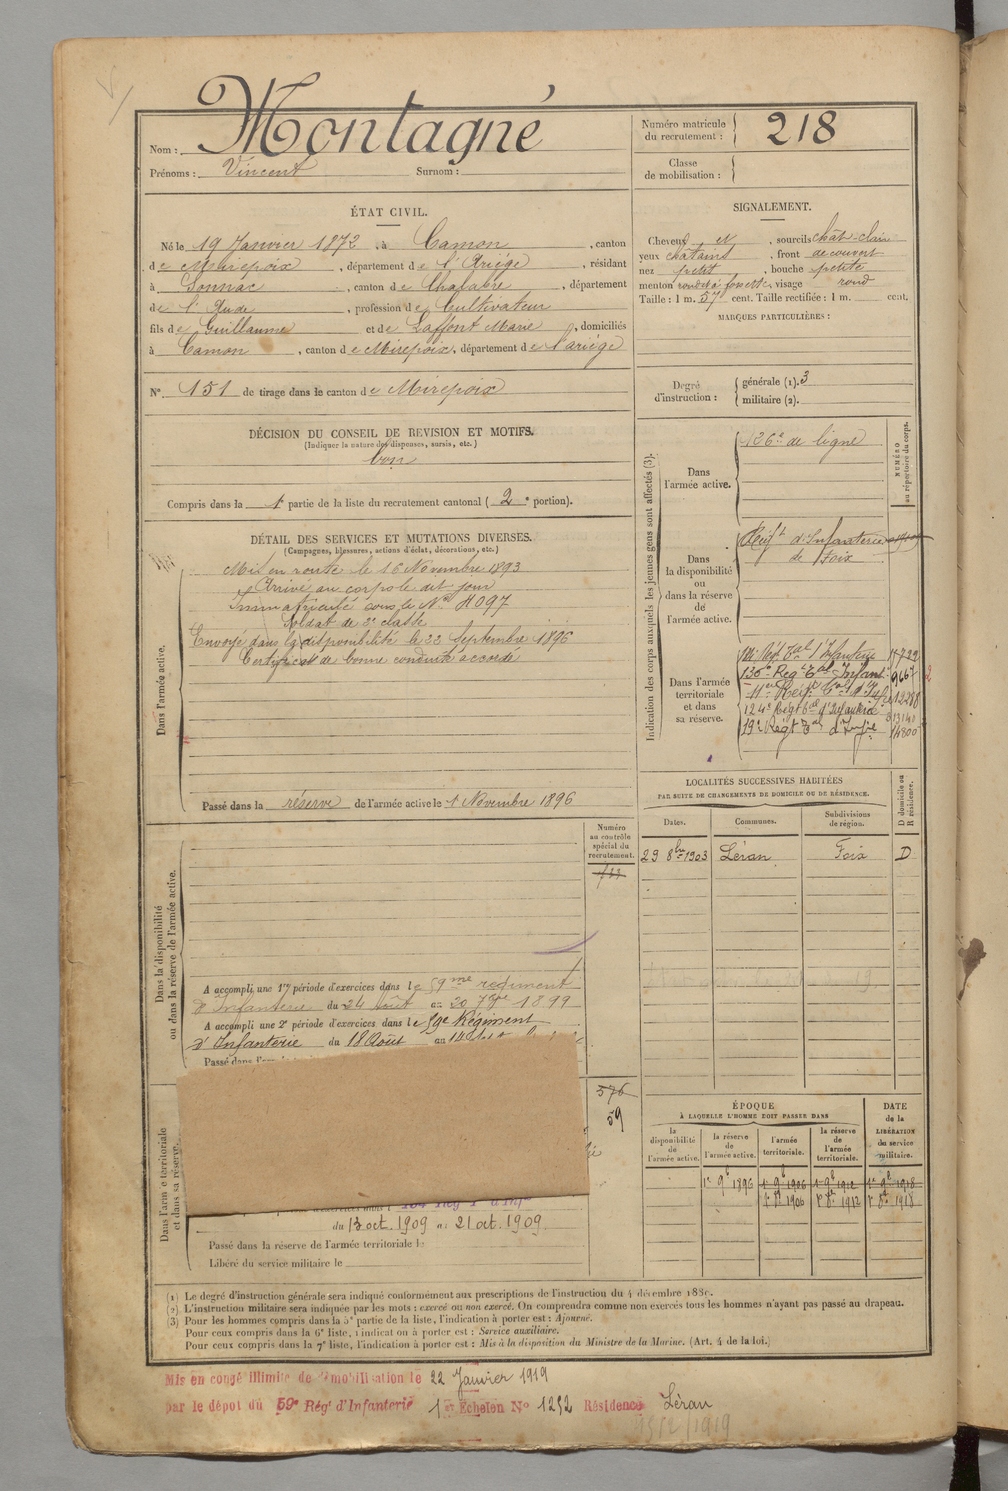 Nom : Montagné
Prénoms : Vincent Surnom :
ÉTAT CIVIL.
Né le 19 Janvier 1872, à Camon, canton
de Mirepoix, département de l'Ariége, résidant
à Sonnac, canton de Chalabre, département
de l'Aude, profession de Cultivateur
fils de Guillaume et de Laffont Marie, domiciliés
à Camon, canton de Mirepoix, département de l'ariége
N° 151 de tirage dans le canton de Mirepoix
DÉCISION DU CONSEIL DE REVISION ET MOTIFS.
(Indiquer la nature des dispenses, sursis, etc.)
bon
Compris dans la 1e partie de la liste du recrutement cantonal (2e portion).
DÉTAIL DES SERVICES ET MUTATIONS DIVERSES.
(Campagnes, blessures, actions d'éclat, décorations, etc.)
Dans l'armée active.
Mis en route le 16 Novembre 1893
Arrivé au corps le dit jour
Immatriculé sous le N° 4097
Soldat de 2e classe
Envoyé dans la disponibilité le 22 Septembre 1896
Certificat de bonne conduite accordé
Passé dans la réserve de l'armée active le 1 Novembre 1896
Dans la disponibilité
ou dans la réserve de l'armée active.
Numéro
au contrôle
spécial du
recrutement.
A accompli une 1re période d'exercices dans le 59me régiment
d'Infanterie du 24 Août au 20 7bre 1899
A accompli une 2e période d'exercices dans le 59e Régiment
d'Infanterie du 18 Août au
Passé dans
576
59
Dans l'armée territoriale
et dans sa réserve.
du 13 oct. 1909 au 21 oct. 1909
Passé dans la réserve de l'armée territoriale le
Libéré du service militaire le
Numéro matricule
du recrutement : 218
Classe
de mobilisation :
SIGNALEMENT.
Cheveux et, sourcils chât-clair
yeux châtains, front découvert
nez petit, bouche petite
menton rond à fossette, visage rond
Taille : 1 m. 57 cent. Taille rectifiée : 1 m. cent.
MARQUES PARTICULIÈRES :
Degré
d'instruction :
générale (1). 3
militaire (2).
Indication des corps auxquels les jeunes gens sont affectés (3).
NUMÉRO
au répertoire du corps.
Dans
l'armée active.
126e de ligne
Dans
la disponibilité
ou
dans la réserve
de
l'armée active.
Régt d'Infanterie
de Foix
Dans l'armée
territoriale
et dans
sa réserve.
130e Régt Tal Infant 9667
11e Régt Tal d'Inf 12288
124e Régt Tal d'Infanterie 13140
19e Régt Tal d'Infie 14800
LOCALITÉS SUCCESSIVES HABITÉES
PAR SUITE DE CHANGEMENTS DE DOMICILE OU DE RÉSIDENCE.
D domicile ou
R résidence.
Dates. Communes. Subdivisions
de région.
29 8bre 1903 Léran Foix D
ÉPOQUE
À LAQUELLE L'HOMME DOIT PASSER DANS
DATE
de la
LIBÉRATION
du service
militaire.
la
disponibilité
de
l'armée active.
la réserve
de
l'armée active.
l'armée
territoriale.
la réserve
de
l'armée
territoriale.
1r 9e 1896 1r 9e 1906 1r 9e 1912 1r 9e 1918
1r 8e 1906 1r 8e 1912 1r 8e 1918
(1) Le degré d'instruction générale sera indiqué conformément aux prescriptions de l'instruction du 4 décembre 1889.
(2) L'instruction militaire sera indiquée par les mots : exercé ou non exercé. On comprendra comme non exercés tous les hommes n'ayant pas passé au drapeau.
(3) Pour les hommes compris dans la 5e partie de la liste, l'indication à porter est : Ajourné.
Pour ceux compris dans la 6e liste, l'indication à porter est : Service auxiliaire.
Pour ceux compris dans la 7e liste, l'indication à porter est : Mis à la disposition du Ministre de la Marine. (Art. 4 de la loi.)
Mis en congé illimité de démobilisation le 22 Janvier 1919
par le dépot du 59e Régt d'Infanterie 1er Echelon N° 1252 Résidence Léran